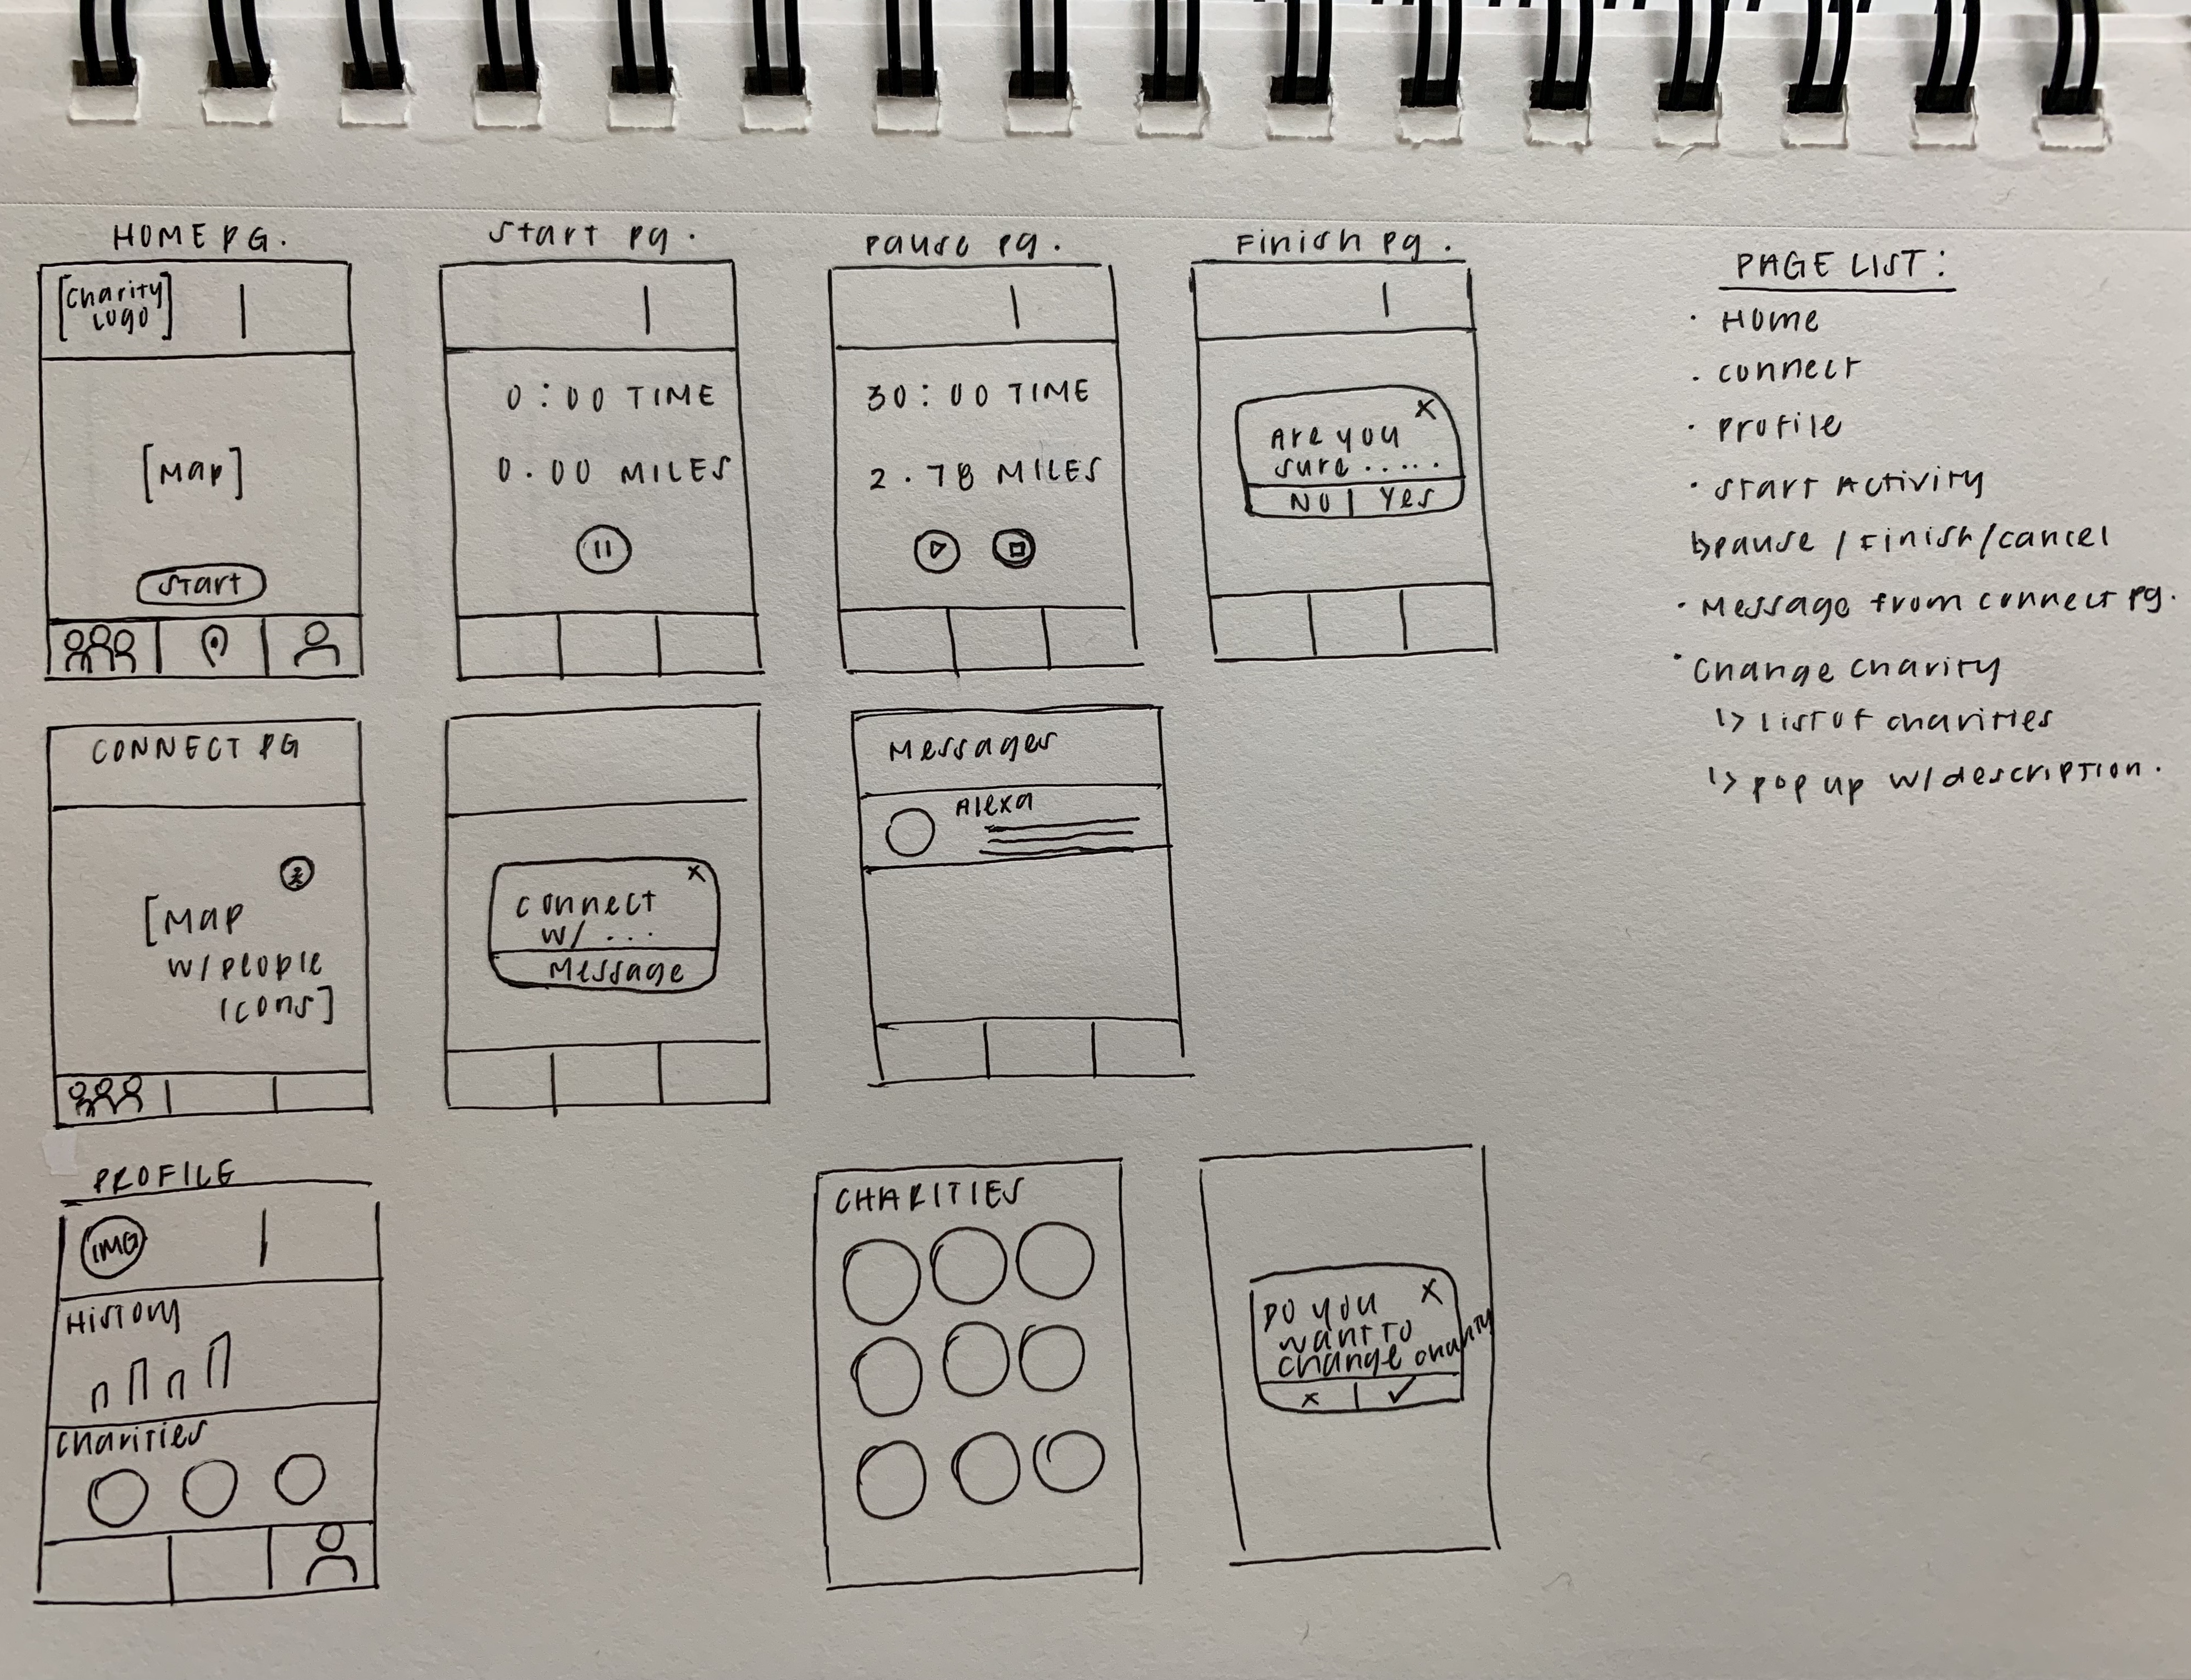 HOME PG.
[Charity
Logo]
[Map]
Start
Start pg.
0:00 TIME
0.00 MILES
Pause pg.
30:00 TIME
2.78 MILES
Finish pg.
X
Are you
sure .....
NO | Yes
PAGE LIST:
· Home
· connect
· Profile
· Start Activity
↳ pause / Finish / cancel
· Message from connect pg.
· Change charity
↳ list of charities
↳ pop up w/ description.
CONNECT PG
[Map
w/ people
icons]
X
connect
w/ ...
Message
Messages
Alexa
PROFILE
IMG
History
Charities
CHARITIES
X
Do you
want to
change charity
x | ✓